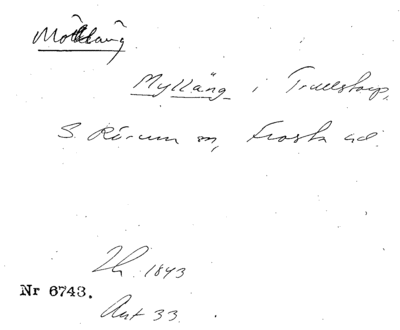 Mylläng i Truelstorp,
S. Rörum sn, Frosta hd.
1843
Nr 6743.
Ant 33